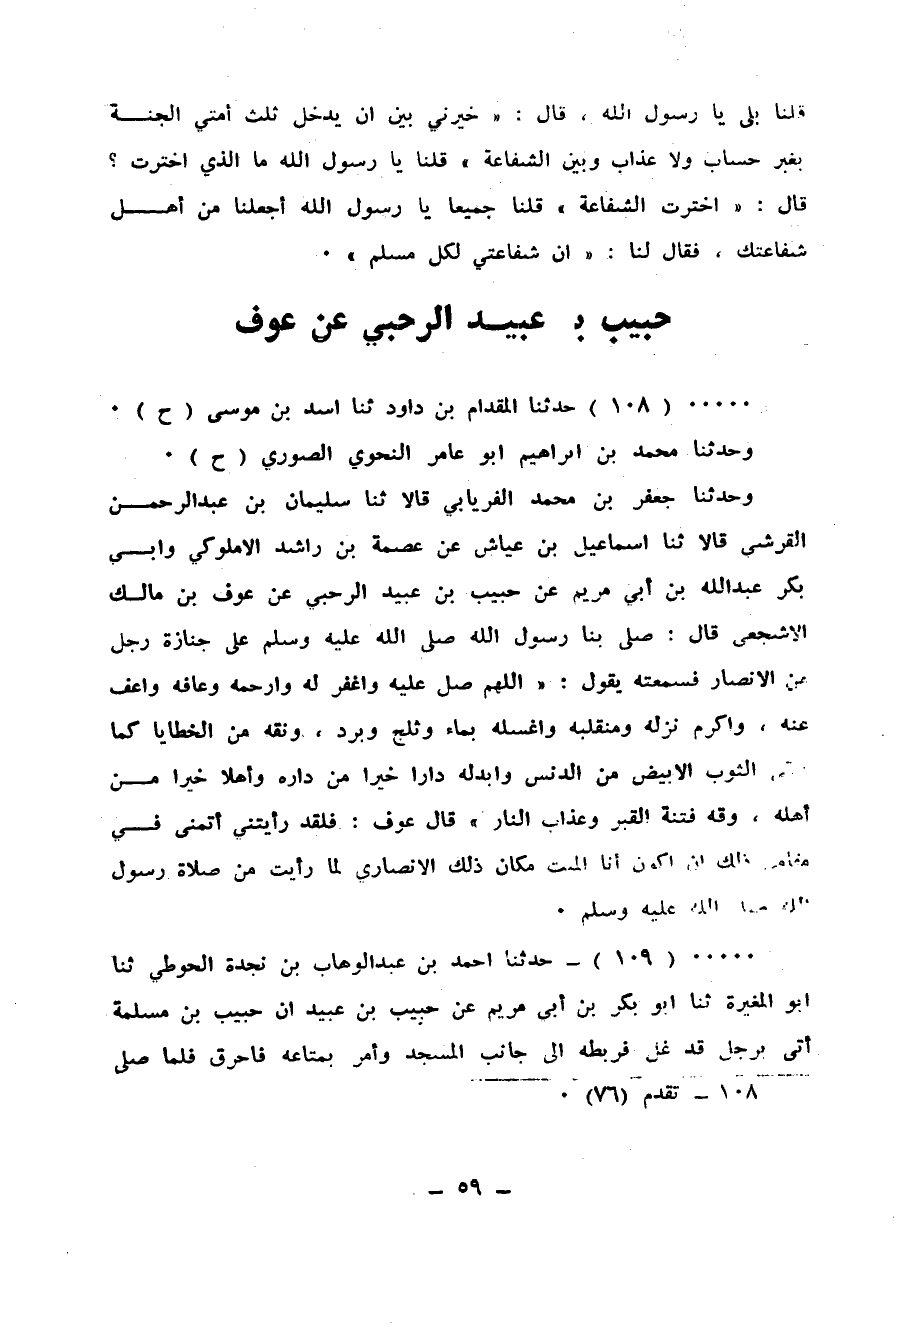 قلنا بلى يا رسول الله ، قال : « خيرني بين ان يدخل ثلث أمتي الجنـــة
بغير حساب ولا عذاب وبين الشفاعة » قلنا يا رسول الله ما الذي اخترت ؟
قال : « اخترت الشفاعة » قلنا جميعا يا رسول الله أجعلنا من أهـــل
شفاعتك ، فقال لنا : « ان شفاعتي لكل مسلم » ٠
حبيب بـ عبيـد الرحبي عن عوف
٠٠٠٠٠ ( ١٠٨ ) حدثنا المقدام بن داود ثنا اسد بن موسى ( ح ) ٠
وحدثنا محمد بن ابراهيم ابو عامر النحوي الصوري ( ح ) ٠
وحدثنا جعفر بن محمد الفريابي قالا ثنا سليمان بن عبدالرحمـــن
القرشي قالا ثنا اسماعيل بن عياش عن عصمة بن راشد الاملوكي وابـــي
بكر عبدالله بن أبي مريم عن حبيب بن عبيد الرحبي عن عوف بن مالــك
الاشجعي قال : صلى بنا رسول الله صلى الله عليه وسلم على جنازة رجل
من الانصار فسمعته يقول : « اللهم صل عليه واغفر له وارحمه وعافه واعف
عنه ، واكرم نزله ومنقلبه واغسله بماء وثلج وبرد ، ونقه من الخطايا كما
الثوب الابيض من الدنس وابدله دارا خيرا من داره وأهلا خيرا مـــن
أهله ، وقه فتنة القبر وعذاب النار » قال عوف : فلقد رأيتني أتمنى فـــي
مقامي ذلك ان اكون أنا الميت مكان ذلك الانصاري لما رأيت من صلاة رسول
الله صلى الله عليه وسلم ٠
٠٠٠٠٠ ( ١٠٩ ) ــ حدثنا احمد بن عبدالوهاب بن نجدة الحوطي ثنا
ابو المغيرة ثنا ابو بكر بن أبي مريم عن حبيب بن عبيد ان حبيب بن مسلمة
أتى برجل قد غل فربطه الى جانب المسجد وأمر بمتاعه فاحرق فلما صلى
١٠٨ ــ تقدم (٧٦) ٠
ــ ٥٩ ــ